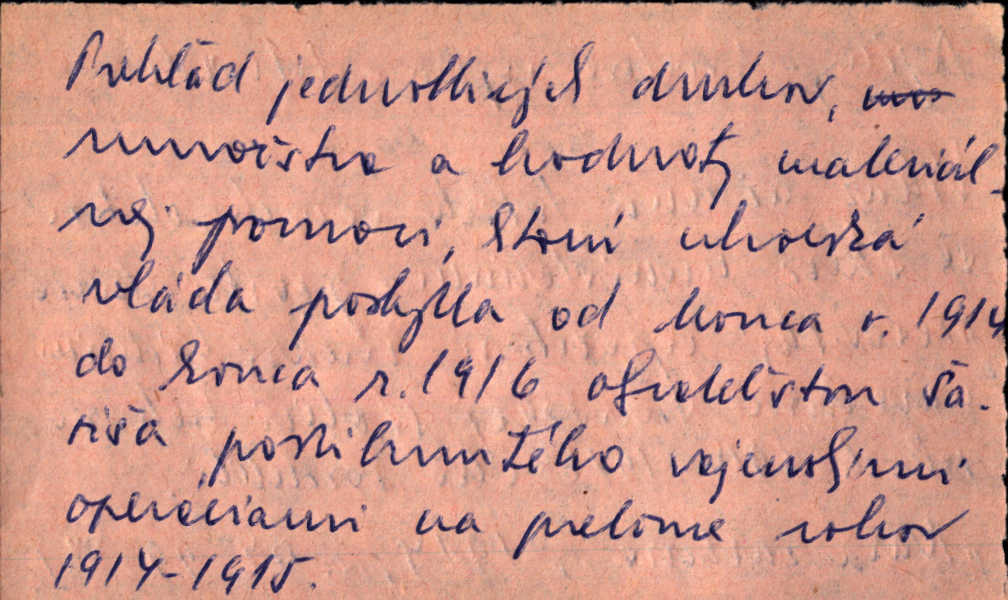 Prehľad jednotlivých druhov,
množstva a hodnoty materiál-
nej pomoci, ktorú uhorská
vláda poskytla od konca r. 1914
do konca r. 1916 obyvateľstvu Ša-
riša postihnutého vojenskými
operáciami na prelome rokov
1914-1915.